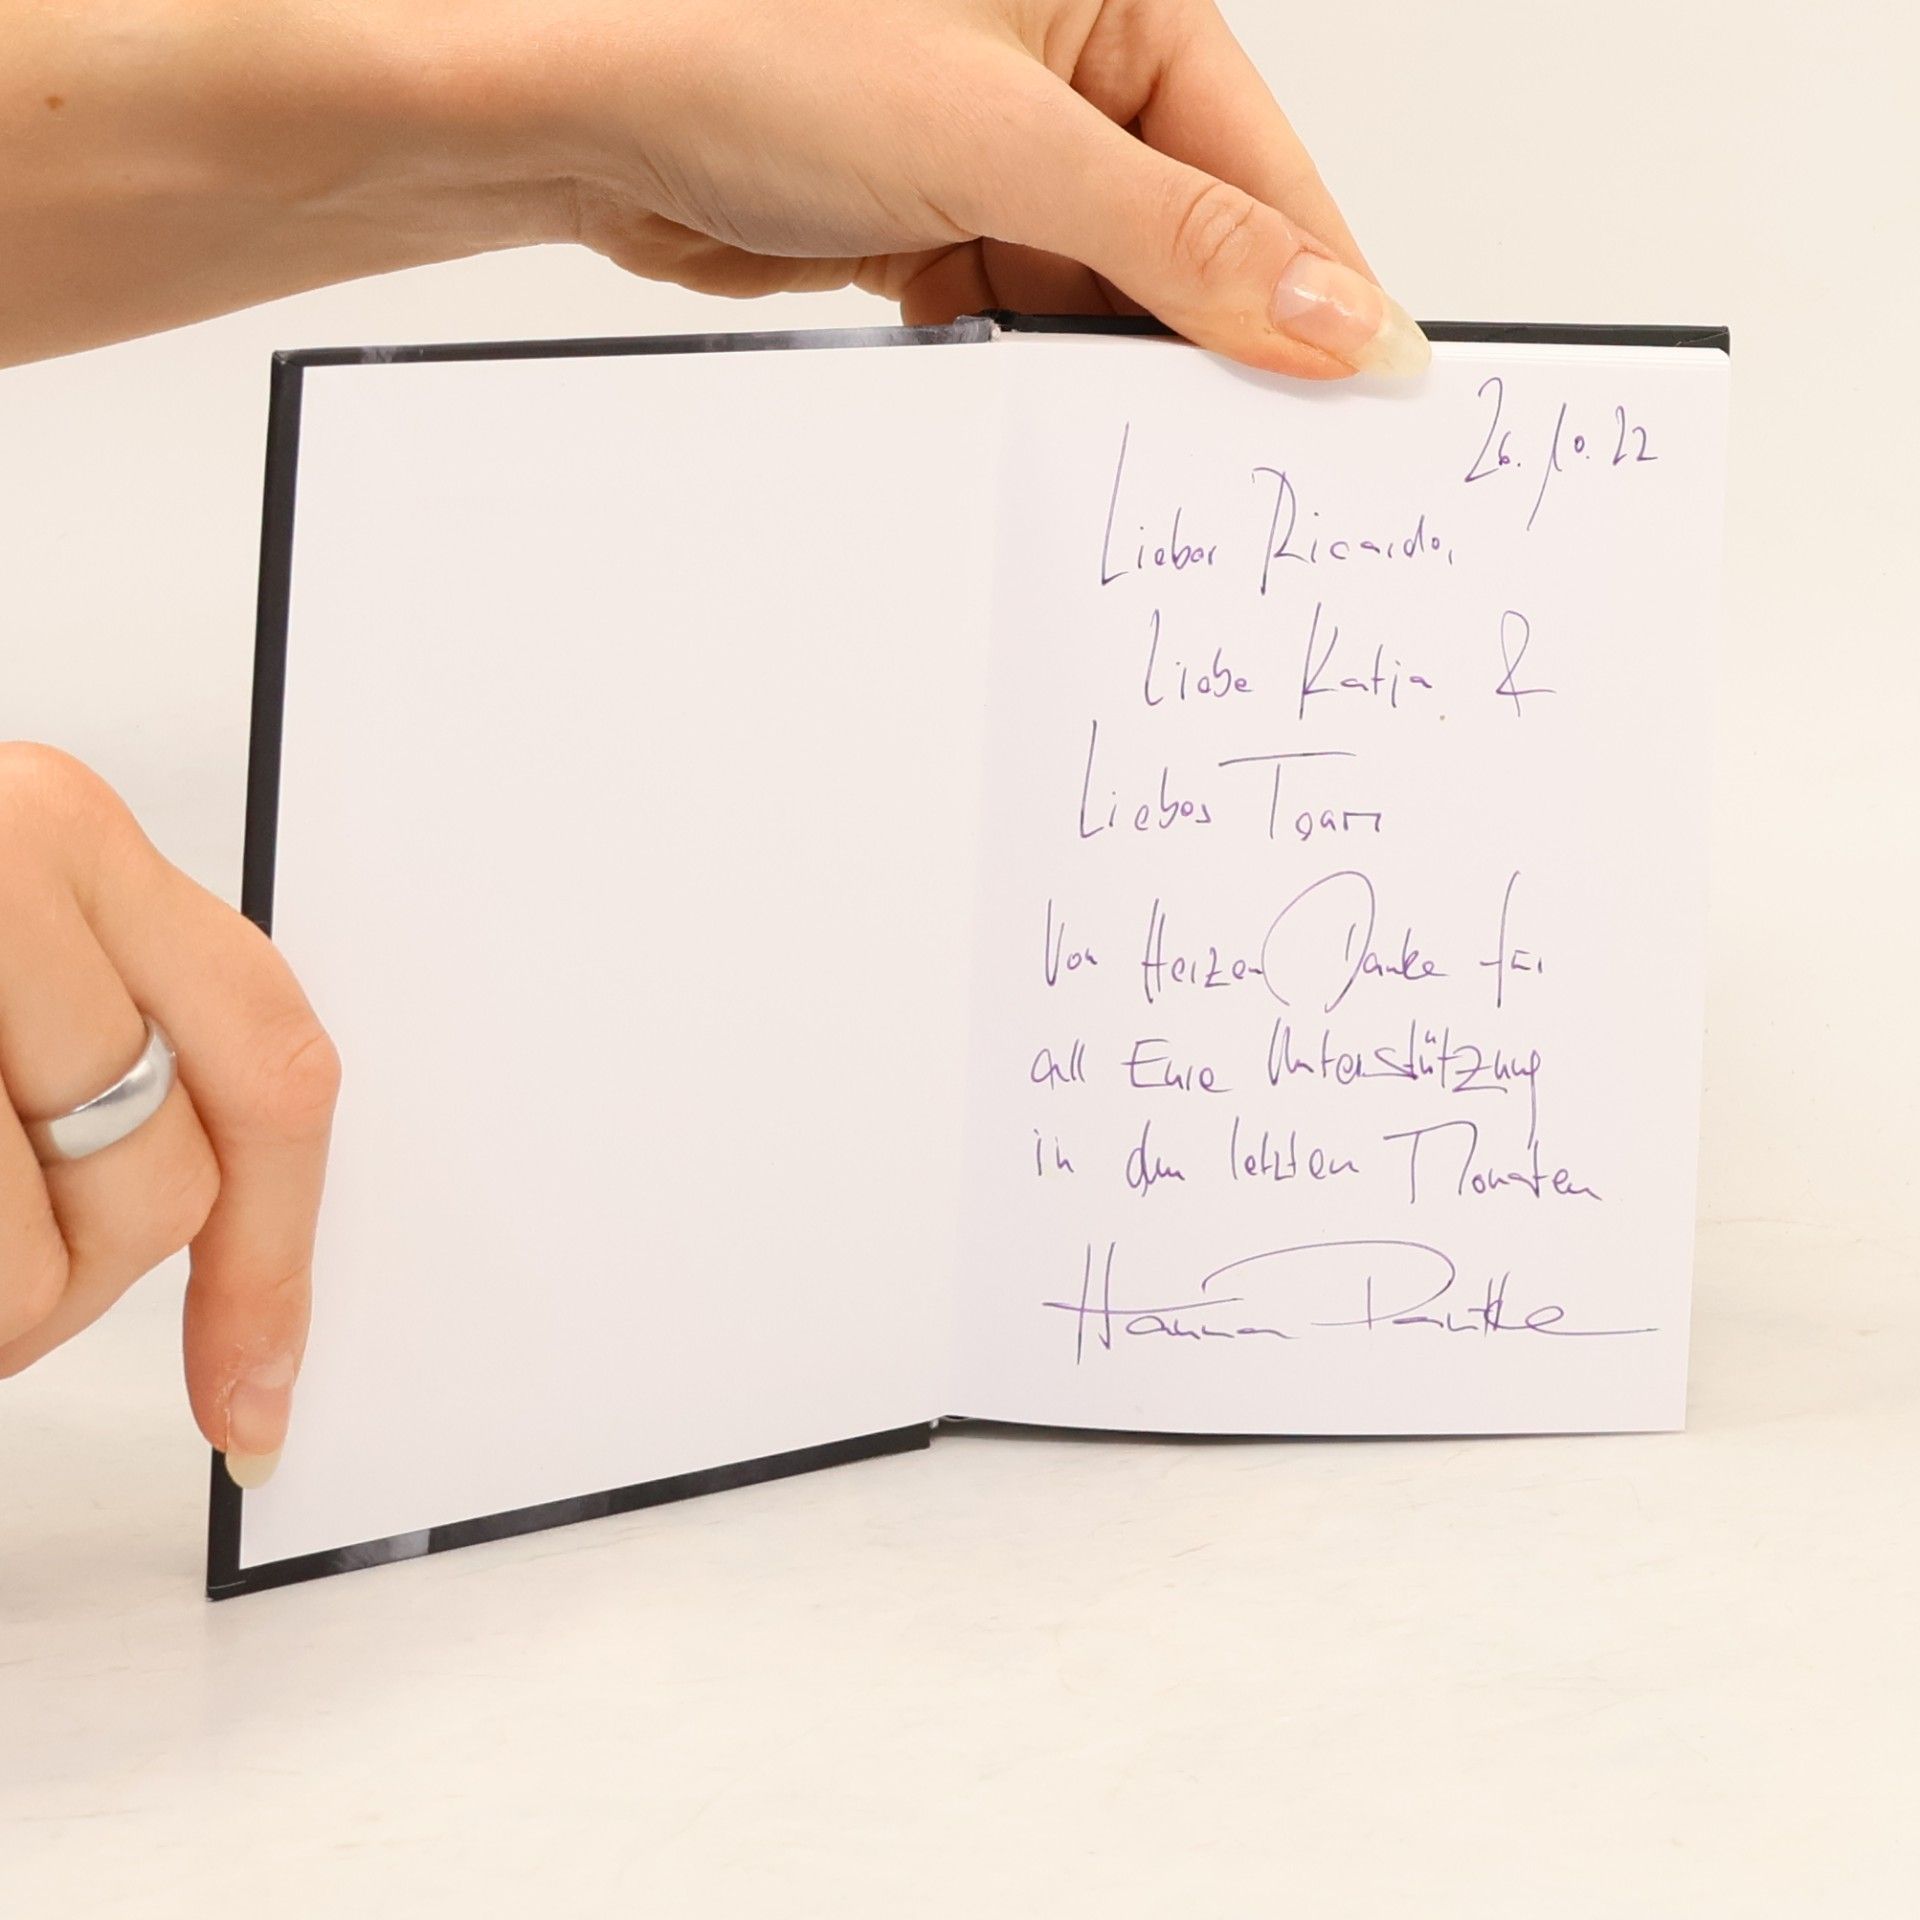 26.10.22
Lieber Ricardo,
Liebe Katja &
Liebes Team
Von Herzen Danke für
all Eure Unterstützung
in den letzten Monaten
Hanna